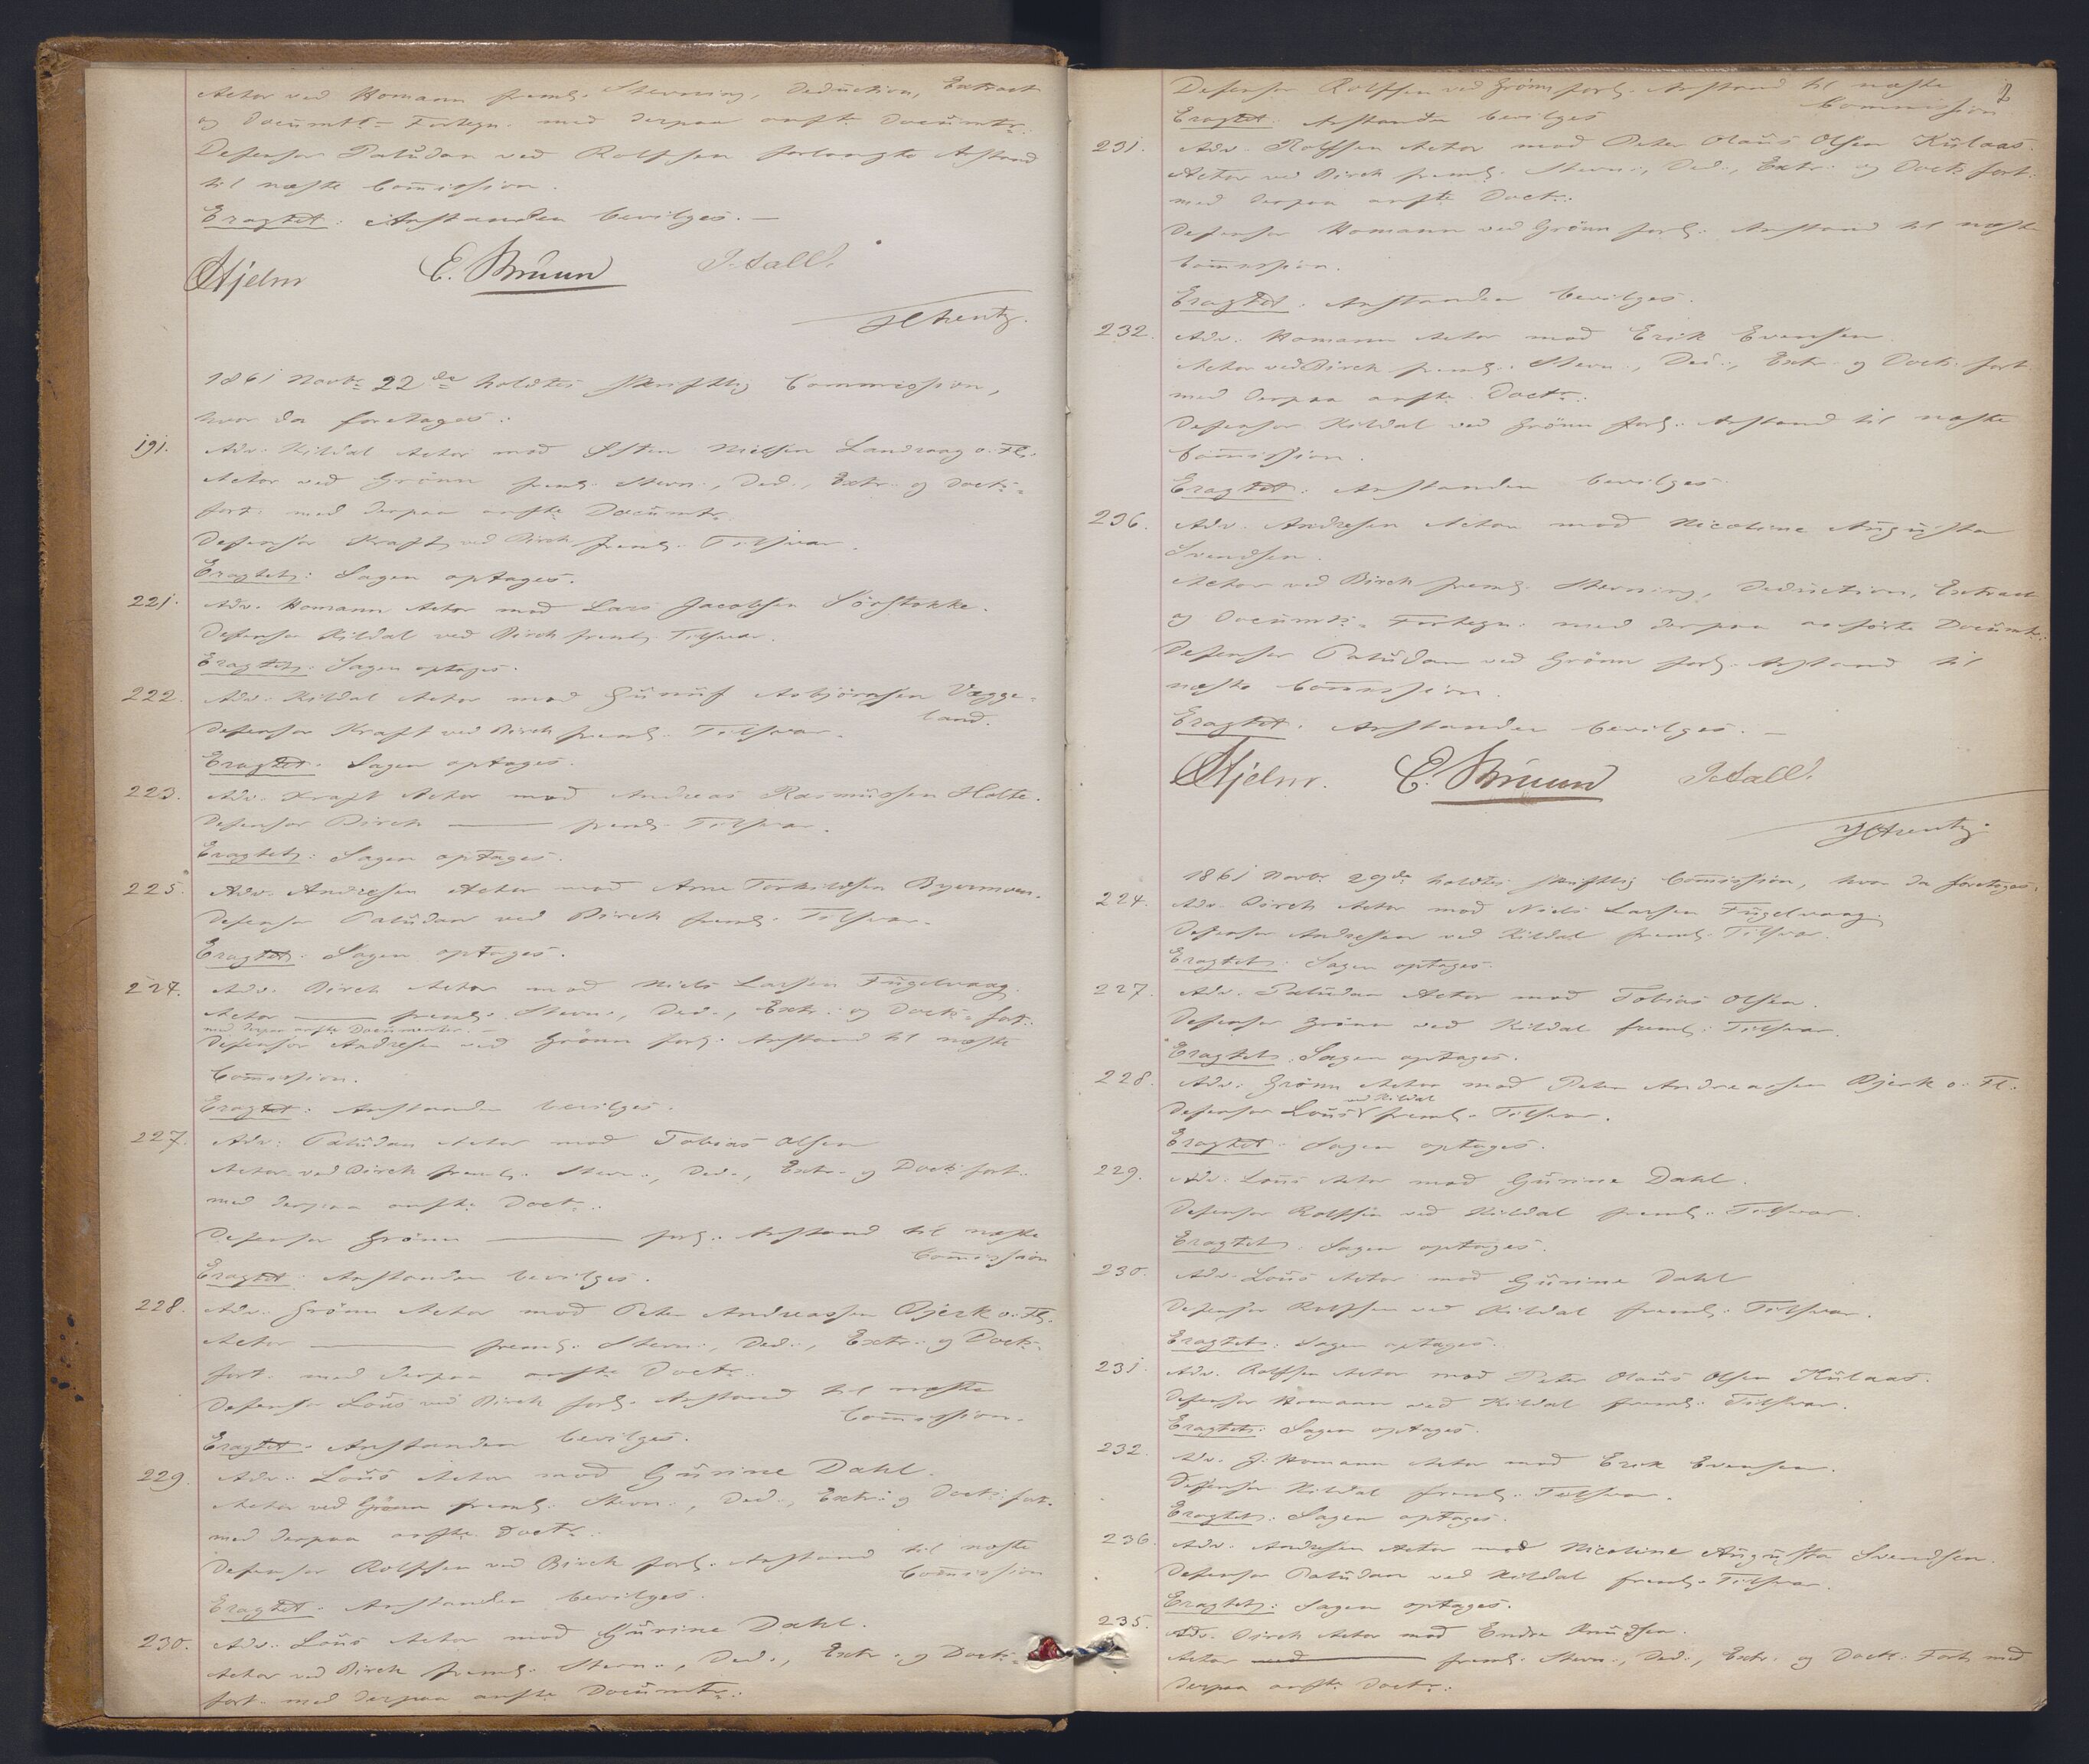 Actor ved Homann freml. Stevning, Deduction, Extract
og Documts= Fortegn. med derpaa anfte Documtr.
Defensor Paludan ved Rolfsen forlangte Anstand
til næste Commission.
Eragtet: Anstanden bevilges. —
Hjelm E. Bruun J. Aall.
1861 Novbr 22de holdtes skriftlig Commission,
hvor da foretages:
191. Adv. Kildal Actor mod Østen Nielsen Landvaag o. Fl.
Actor ved Grönn freml. Stevn., Ded., Extr. og Docts=
fort. med derpaa anfte Documtr.
Defensor Kraft ved Birch freml. Tilsvar.
Eragtet: Sagen optages.
221. Adv. Homann Actor mod Lars Jacobsen Sörstokke.
Defensor Kildal ved Birch freml. Tilsvar.
Eragtet: Sagen optages.
222. Adv. Kildal Actor mod Gunuf Asbjörnsen Vægge-
land.
Defensor Kraft ved Birch freml. Tilsvar.
Eragtet: Sagen optages.
223. Adv. Kraft Actor mod Andreas Rasmussen Holte.
Defensor Birch — freml. Tilsvar.
Eragtet: Sagen optages.
225. Adv. Andresen Actor mod Arne Torkildsen
Defensor Paludan ved Birch freml. Tilsvar.
Eragtet: Sagen optages.
224. Adv. Birch Actor mod Niels Larsen Fugelvaag.
Actor — freml. Stevn., Ded., Extr. og Docts= fort.
med derpaa anfte Documenter. —
Defensor Andresen ved Grönn forl. Anstand til næste
Commission.
Eragtet: Anstanden bevilges.
227. Adv. Paludan Actor mod Tobias Olsen
Actor ved Birch freml. Stevn., Ded., Extr. og Docts fort.
med derpaa anfte Doctr.
Defensor Grönn — forl. Anstand til næste
Commission
Eragtet: Anstanden bevilges.
228. Adv. Grönn Actor mod Peter Andreassen Bjerk o. Fl.
Actor — freml. Stevn., Ded., Extr. og Docts=
fort. med derpaa anfte Doctr.
Defensor Lous ved Birch forl. Anstand til næste
Commission.
Eragtet: Anstanden bevilges.
229. Adv. Lous Actor mod Gurine Dahl.
Actor ved Grönn freml. Stevn., Ded., Extr. og Docts fort.
med derpaa anfte Doctr.
Defensor Rolfsen ved Birch forl. Anstand til næste
Commission
Eragtet: Anstanden bevilges.
230. Adv. Lous Actor mod Gurine Dahl.
Actor ved Birch freml. Stevn., Ded., Extr. og Docts=
fort. med derpaa anfte Documtr.
2
Defensor Rolfsen ved Grönn forl. Anstand til næste
Commission
Eragtet: Anstanden bevilges
231. Adv. Rolfsen Actor mod Peter Olaus Olsen Kulaas.
Actor ved Birch freml. Stevn., Ded., Extr. og Docts fort.
med derpaa anfte Doctr.
Defensor Homann ved Grönn forl. Anstand til næste
Commission.
Eragtet: Anstanden bevilges.
232. Adv. Homann Actor mod Erik Evensen.
Actor ved Birch freml. Stevn., Ded., Extr. og Docts fort.
med derpaa anfte Doctr.
Defensor Kildal ved Grönn forl. Anstand til næste
Commission.
Eragtet: Anstanden bevilges.
236. Adv. Andresen Actor mod Nicoline Augusta
Svendsen.
Actor ved Birch freml. Stevning, Deduction, Extract
og Documts= Fortegn. med derpaa anförte Documtr.
Defensor Paludan ved Grönn forl. Anstand til
næste Commission.
Eragtet: Anstanden bevilges. —
Hjelm. E. Bruun J. Aall.
1861 Novbr 29de holdtes skriftlig Commission, hvor da foretages:
224. Adv. Birch Actor mod Niels Larsen Fugelvaag.
Defensor Andresen ved Kildal freml. Tilsvar.
Eragtet: Sagen optages.
227. Adv. Paludan Actor mod Tobias Olsen.
Defensor Grönn ved Kildal freml. Tilsvar.
Eragtet: Sagen optages.
228. Adv. Grönn Actor mod Peter Andreassen Bjerk o. Fl.
ved Kildal
Defensor Lous freml. Tilsvar.
Eragtet: Sagen optages.
229. Adv. Lous Actor mod Gurine Dahl.
Defensor Rolfsen ved Kildal freml. Tilsvar.
Eragtet: Sagen optages.
230. Adv. Lous Actor mod Gurine Dahl
Defensor Rolfsen ved Kildal freml. Tilsvar.
Eragtet: Sagen optages.
231. Adv. Rolfsen Actor mod Peter Olaus Olsen Kulaas.
Defensor Homann ved Kildal freml. Tilsvar.
Eragtet: Sagen optages.
232. Adv. J. Homann Actor mod Erik Evensen.
Defensor Kildal freml. Tilsvar.
Eragtet: Sagen optages.
236. Adv. Andresen Actor mod Nicoline Augusta Svendsen.
Defensor Paludan ved Kildal freml. Tilsvar.
Eragtet: Sagen optages.
235. Adv. Birch Actor mod Endre Knudsen.
Actor ved — freml. Stevn., Ded., Extr. og Docts. Fort. med
derpaa anfte Doctr.